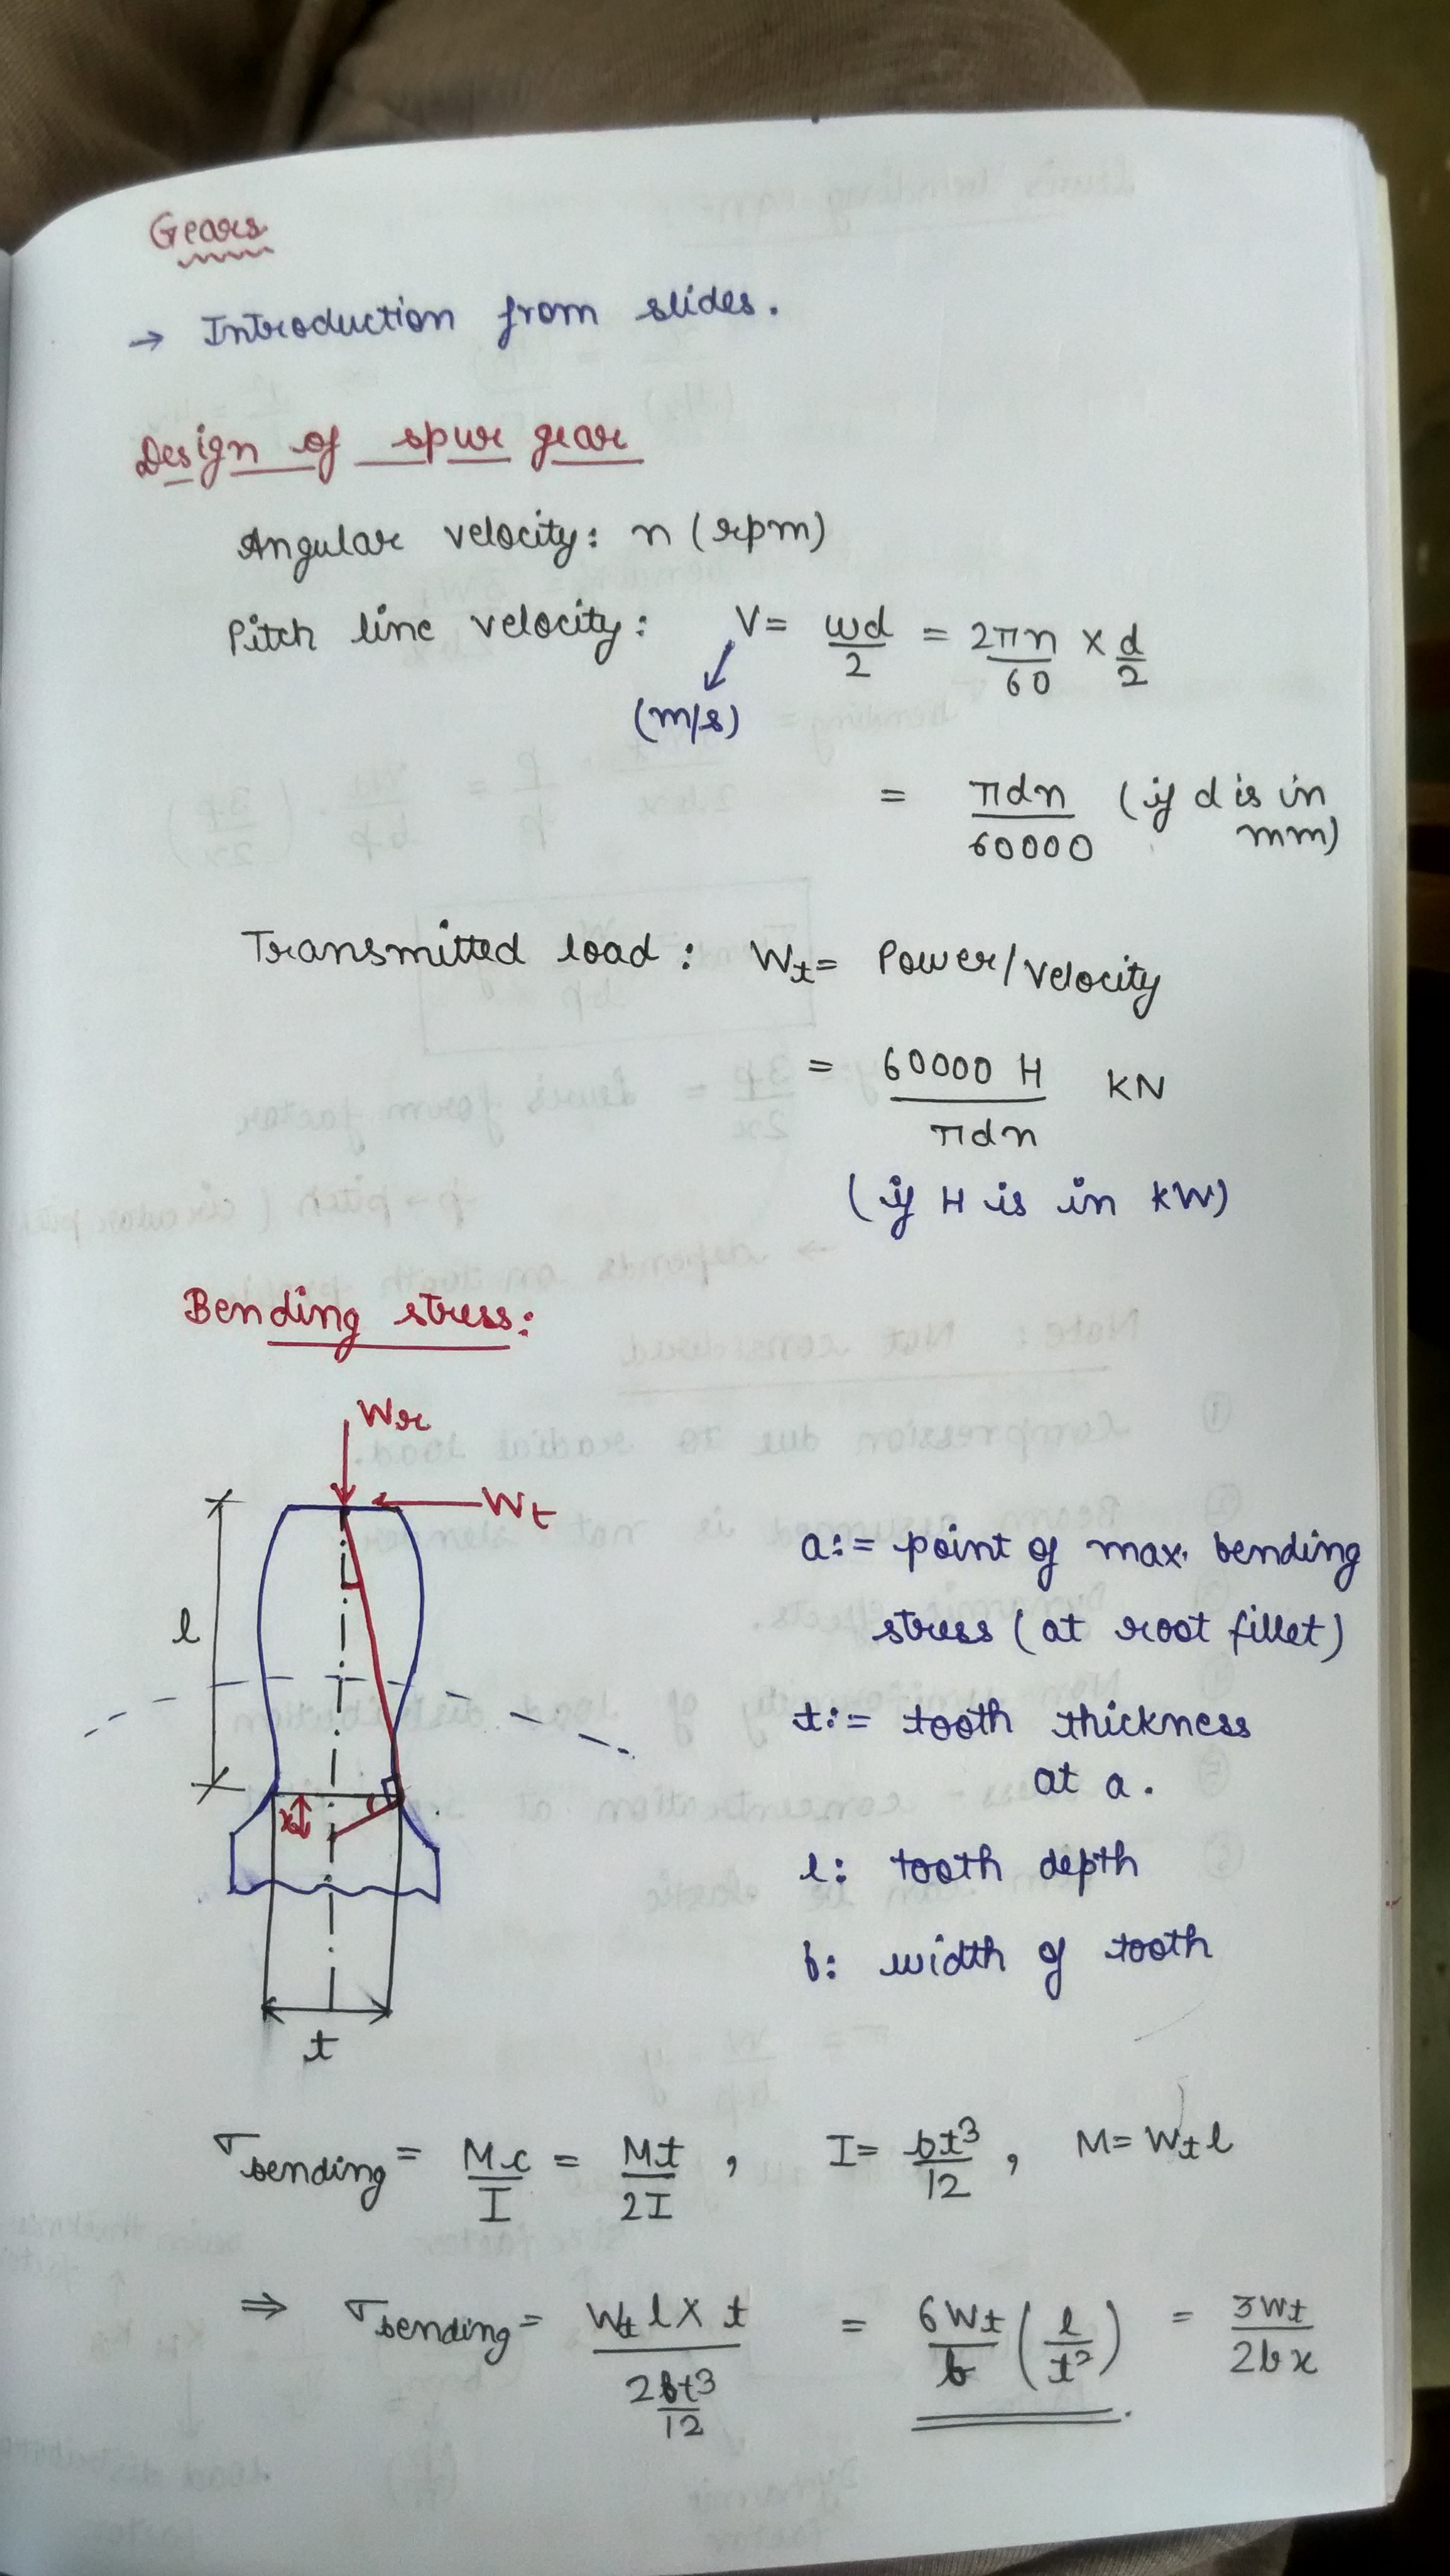 Gears
→ Introduction from slides.
Design of spur gear
Angular velocity: n (rpm)
Pitch line velocity: V = ωd/2 = 2πn/60 × d/2
(m/s)
= πdn/60000 (if d is in mm)
Transmitted load: Wt = Power/velocity
= 60000 H/πdn KN
(if H is in kW)
Bending stress:
Wr
Wt
l
x
t
a:= point of max. bending
stress (at root fillet)
t:= tooth thickness
at a.
l: tooth depth
b: width of tooth
σbending = Mc/I = Mt/2I , I = bt³/12 , M = Wt l
⇒ σbending = Wt l × t/(2bt³/12) = 6Wt/b (l/t²) = 3Wt/2bx